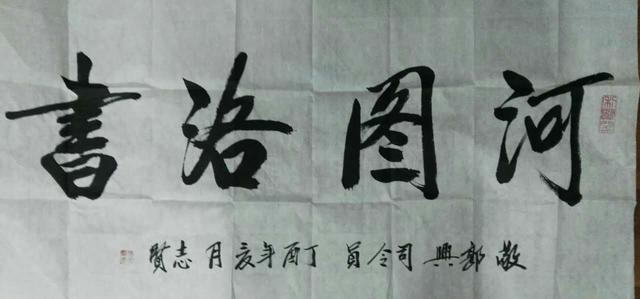 河图洛书
敬郭興司令員丁酉年亥月志賢